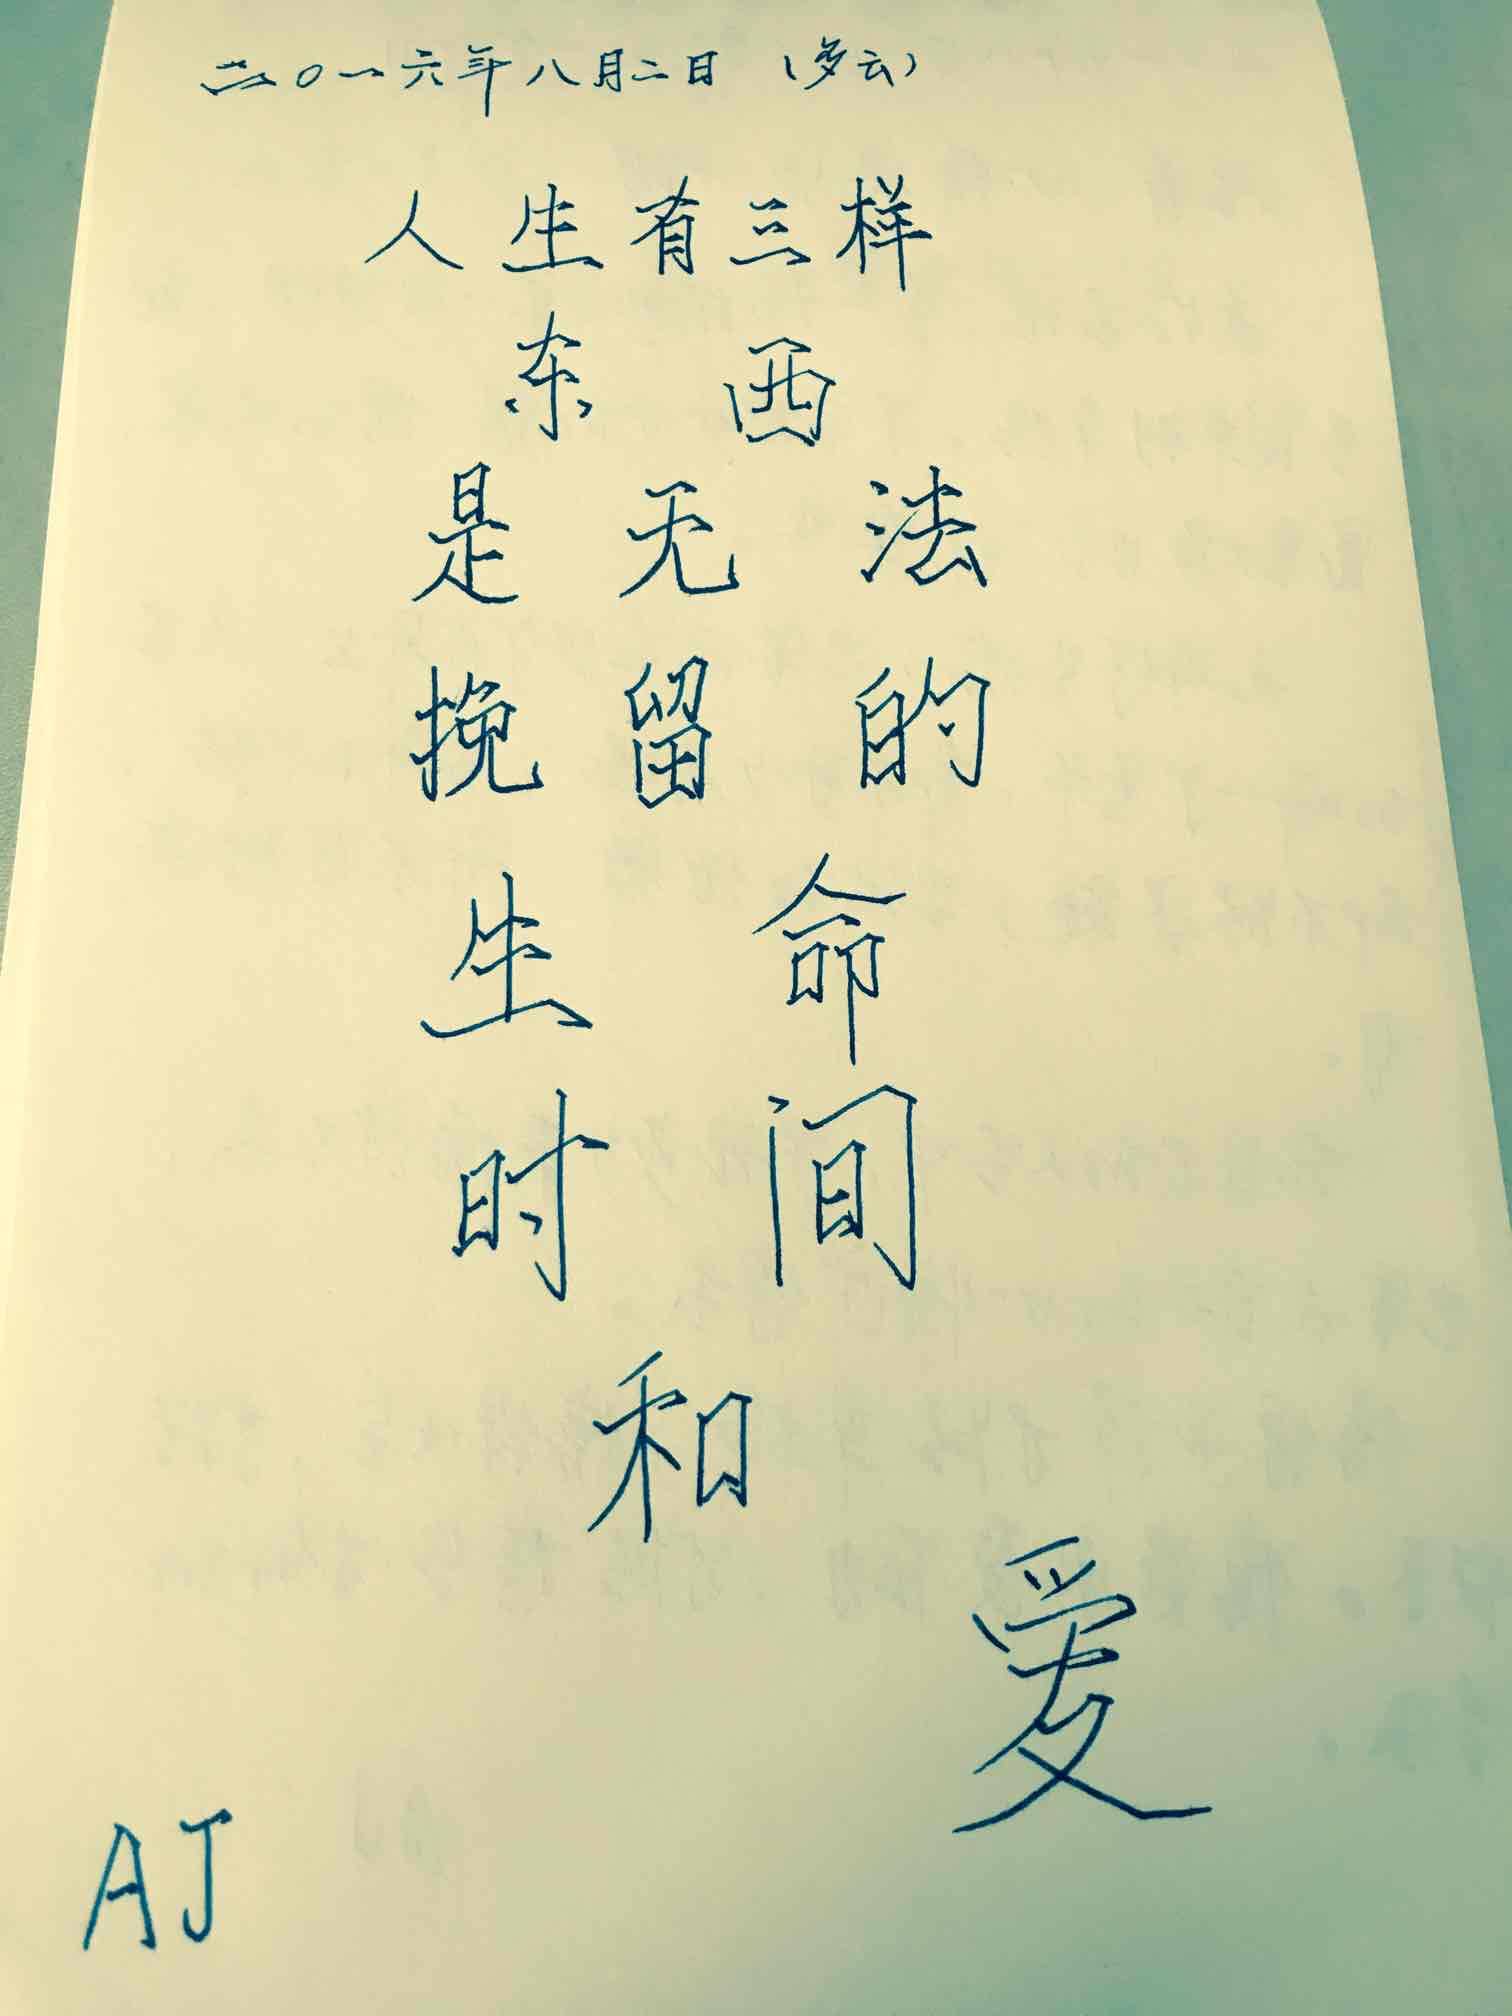 二〇一六年八月二日（多云）
人生有三样
东西
是无法
挽留的
生命
时间
和
爱
AJ